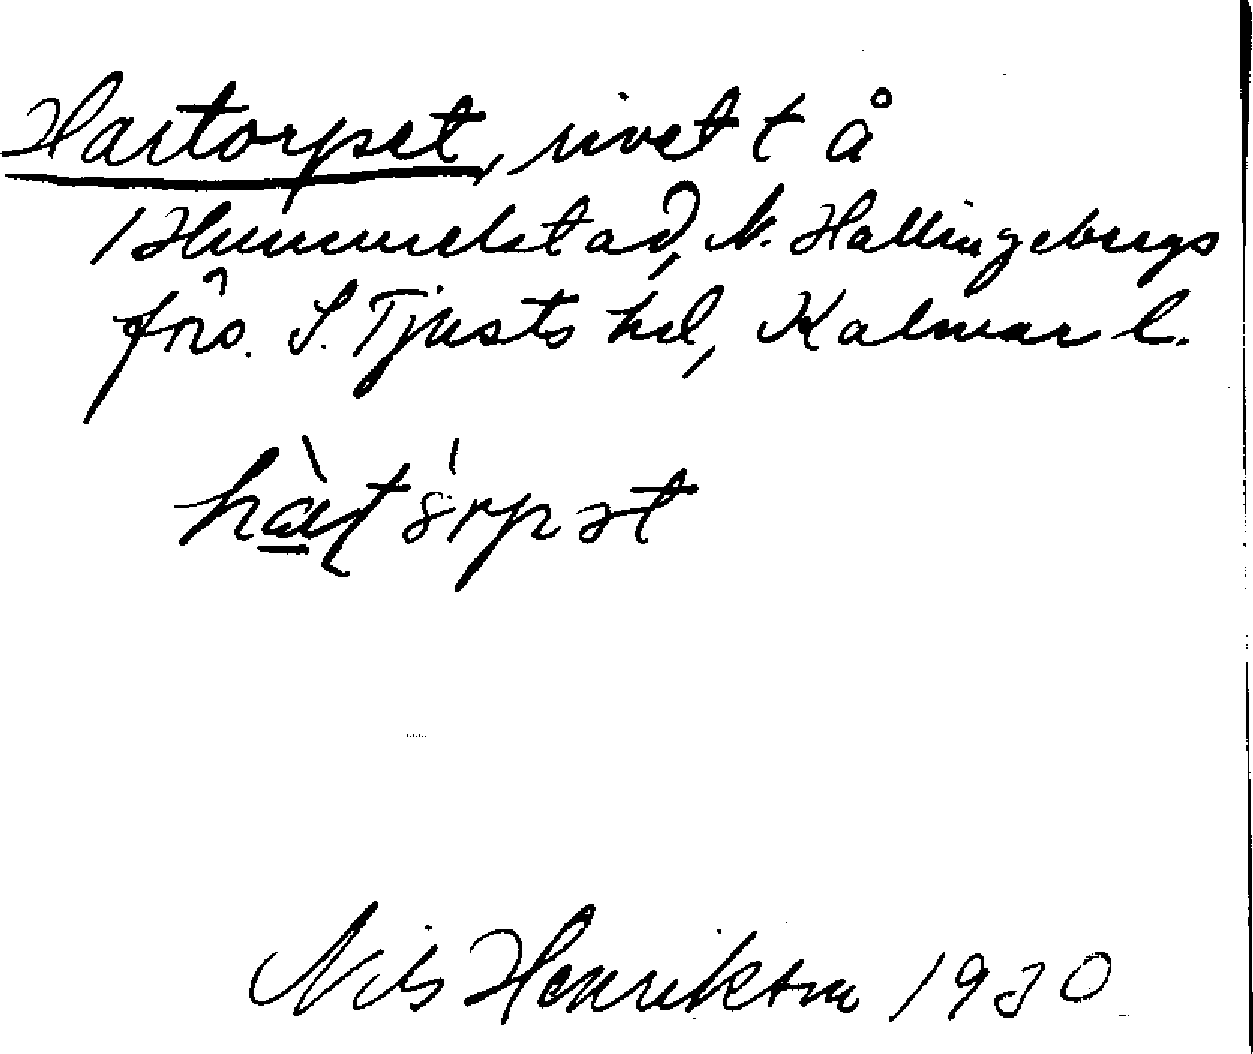 Hartorpet, rivet t å
1 Hummelstad, N. Hallingebergs
förs. S. Tjusts hd, Kalmar l.
Nils Henrikson 1930